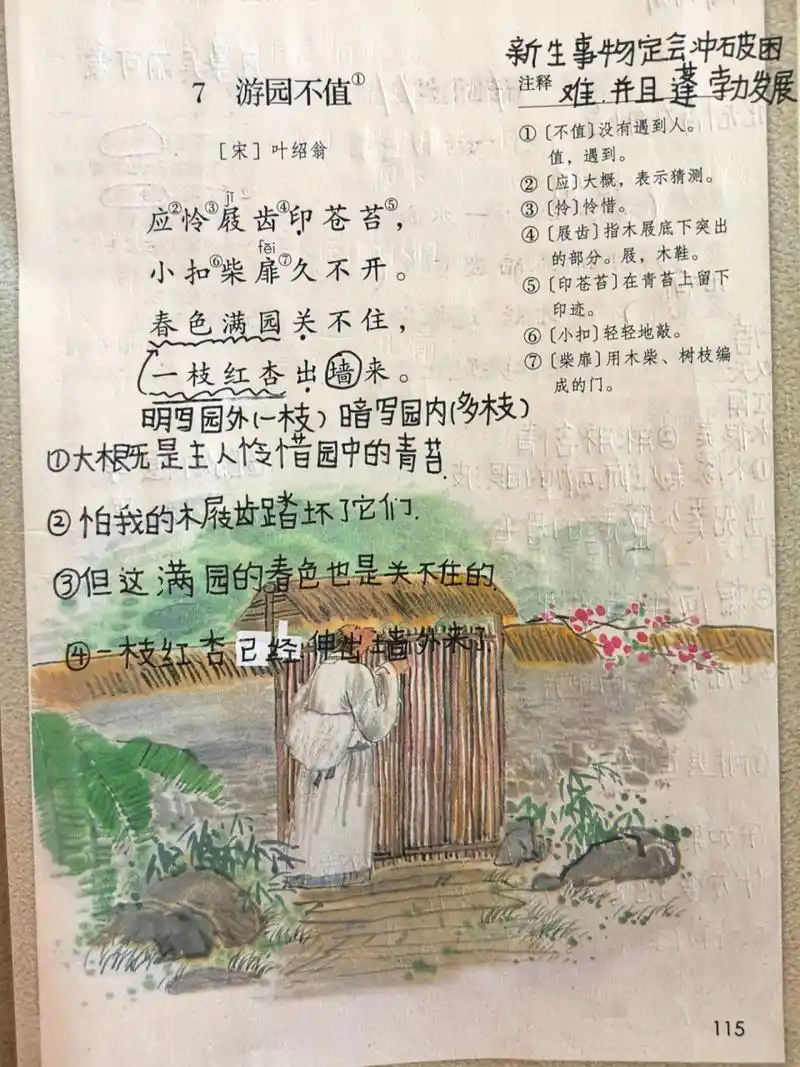 新生事物定会冲破困
难.并且蓬勃发展
7 游园不值①
注释
[宋]叶绍翁
①〔不值〕没有遇到人。
值,遇到。
②〔应〕大概,表示猜测。
③〔怜〕怜惜。
④〔屐齿〕指木屐底下突出
的部分。屐,木鞋。
⑤〔印苍苔〕在青苔上留下
印迹。
⑥〔小扣〕轻轻地敲。
⑦〔柴扉〕用木柴、树枝编
成的门。
jī
应②怜③屐齿④印苍苔⑤,
fēi
小扣⑥柴扉⑦久不开。
春色满园关不住,
一枝红杏出墙来。
明写园外(一枝)暗写园内(多枝)
①大概是主人怜惜园中的青苔.
②怕我的木屐齿踏坏了它们.
③但这满园的春色也是关不住的.
④一枝红杏已经伸出墙外来了.
115